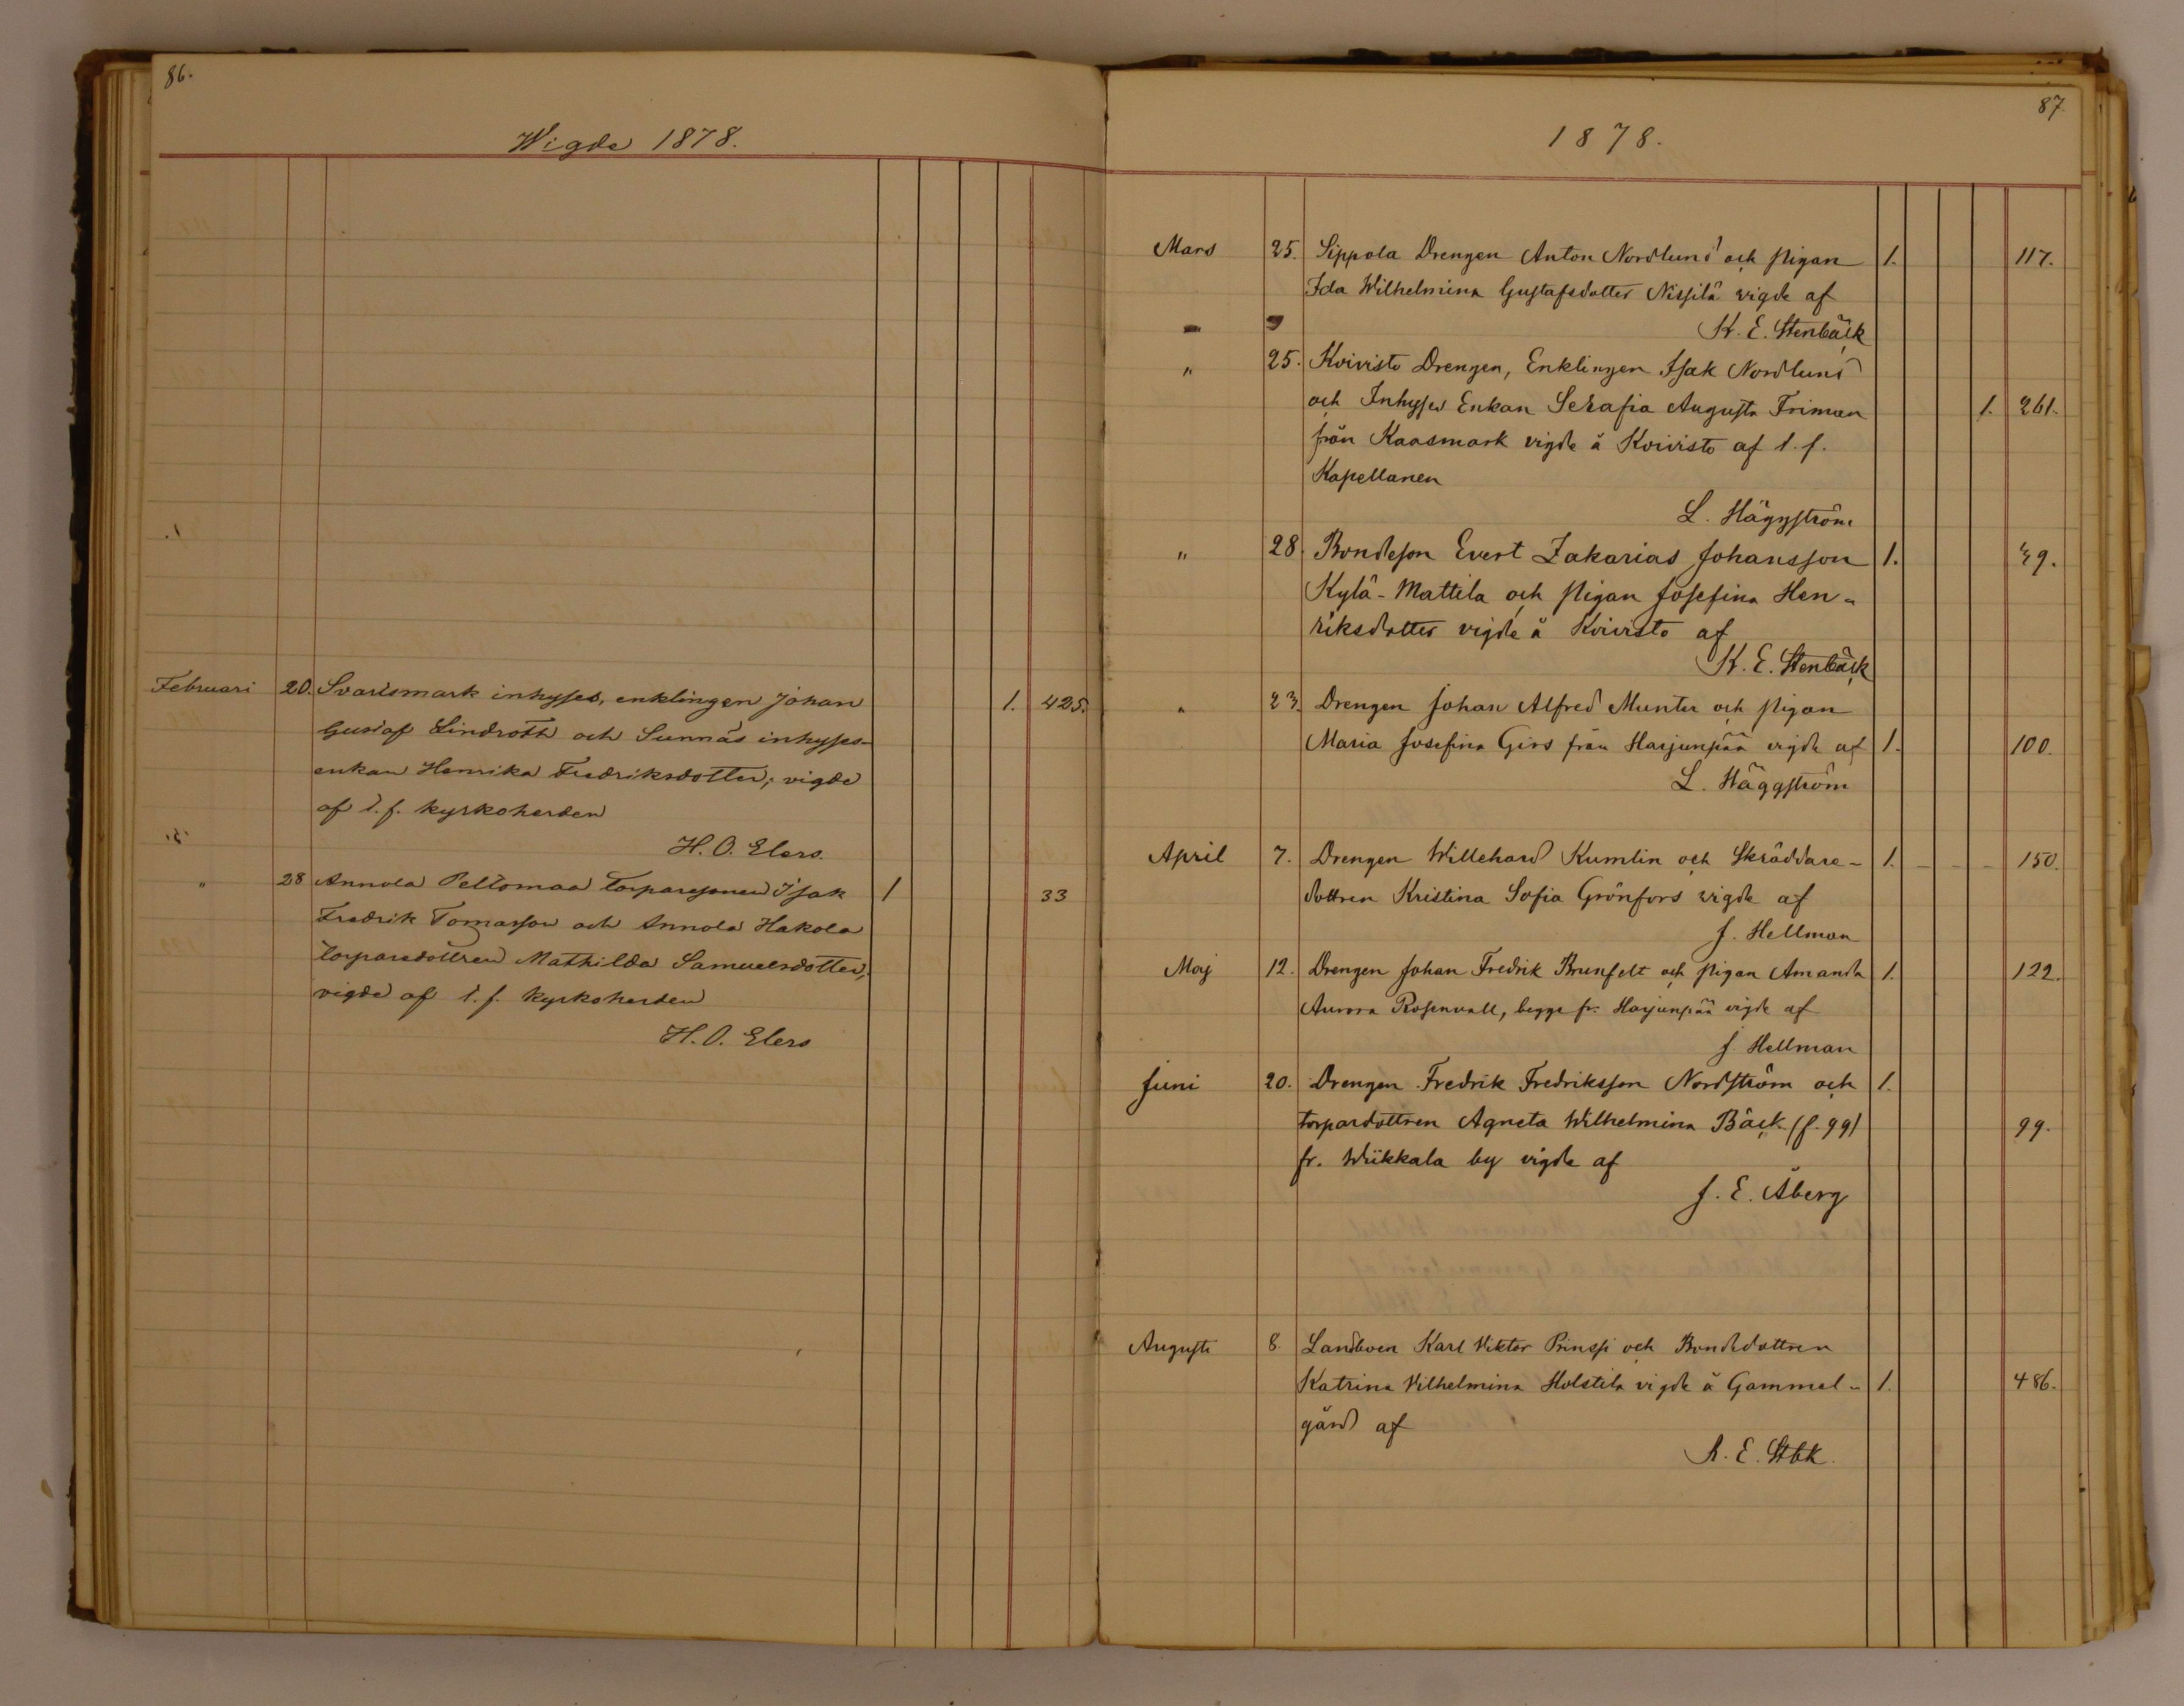 86.
Wigde 1878.
Februari 20. Svartsmark inhyses, enklingen Johan 1. 425.
Gustaf Lindroth och Sunnäs inhyses-
enkan Henrika Fredriksdotter; vigde
af t. f. kyrkoherden
H. O. Elers.
" 28 Annola Peltomaa Torparesonen Isak 1 33
Fredrik Tomasson och Annola Hakola
torparedottren Mathilda Samuelsdotter,
vigde af t. f. Kyrkoherden
H. O. Elers
87.
1878.
Mars 25. Sippola Drengen Anton Nordlund och pigan 1. 117.
Ida Wilhelmina Gustafsdotter Nissilä vigde af
K. E. Stenbäck
" 25. Koivisto Drengen, Enklingen Isak Nordlund
och Inhyses Enkan Serafia Augusta Friman 1. 261.
från Kaasmark vigde å Koivisto af t. f.
Kapellanen
L. Häggström
" 28. Bondeson Evert Zakarias Johansson 1. 49.
Kylä-Mattila och pigan Josefina Hen-
riksdotter vigde å Koivisto af
K. E. Stenbäck
" 23. Drengen Johan Alfred Munter och pigan
Maria Josefina Girs från Harjunpää vigde af 1. 100.
L. Häggström
April 7. Drengen Willehard Kumlin och Skräddare- 1. - - - 150.
dottren Kristina Sofia Grönfors vigde af
J. Hellman
Maj 12. Drengen Johan Fredrik Brunfelt och pigan Amanda 1. 122.
Aurora Rosenvall, begge fr. Harjunpää vigde af
J. Hellman
Juni 20. Drengen Fredrik Fredriksson Nordström och 1.
torpardottren Agneta Wilhelmina Bäck (f. 99) 99.
fr. Wiikkala by vigde af
J. E. Åberg
Augusti 8. Landboen Karl Viktor Prinssi och Bondedottren
Katrina Vilhelmina Holstila vigde å Gammel- 1. 486.
gård af
K. E. Stbk.